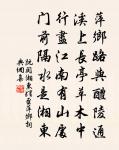 萍鄉路與醴陵通
溪上長亭草木中
行盡江南有山處
門前隔水是湘東
阮閱湘東驛萍鄉栁
典國集